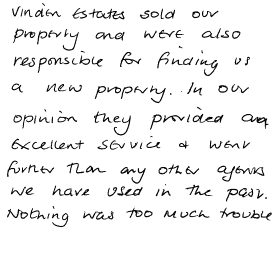 Vinden Estates sold our
property and were also
responsible for finding us
a new property. In our
opinion they provided an
Excellent service & went
further than any other agents
we have used in the past.
Nothing was too much trouble